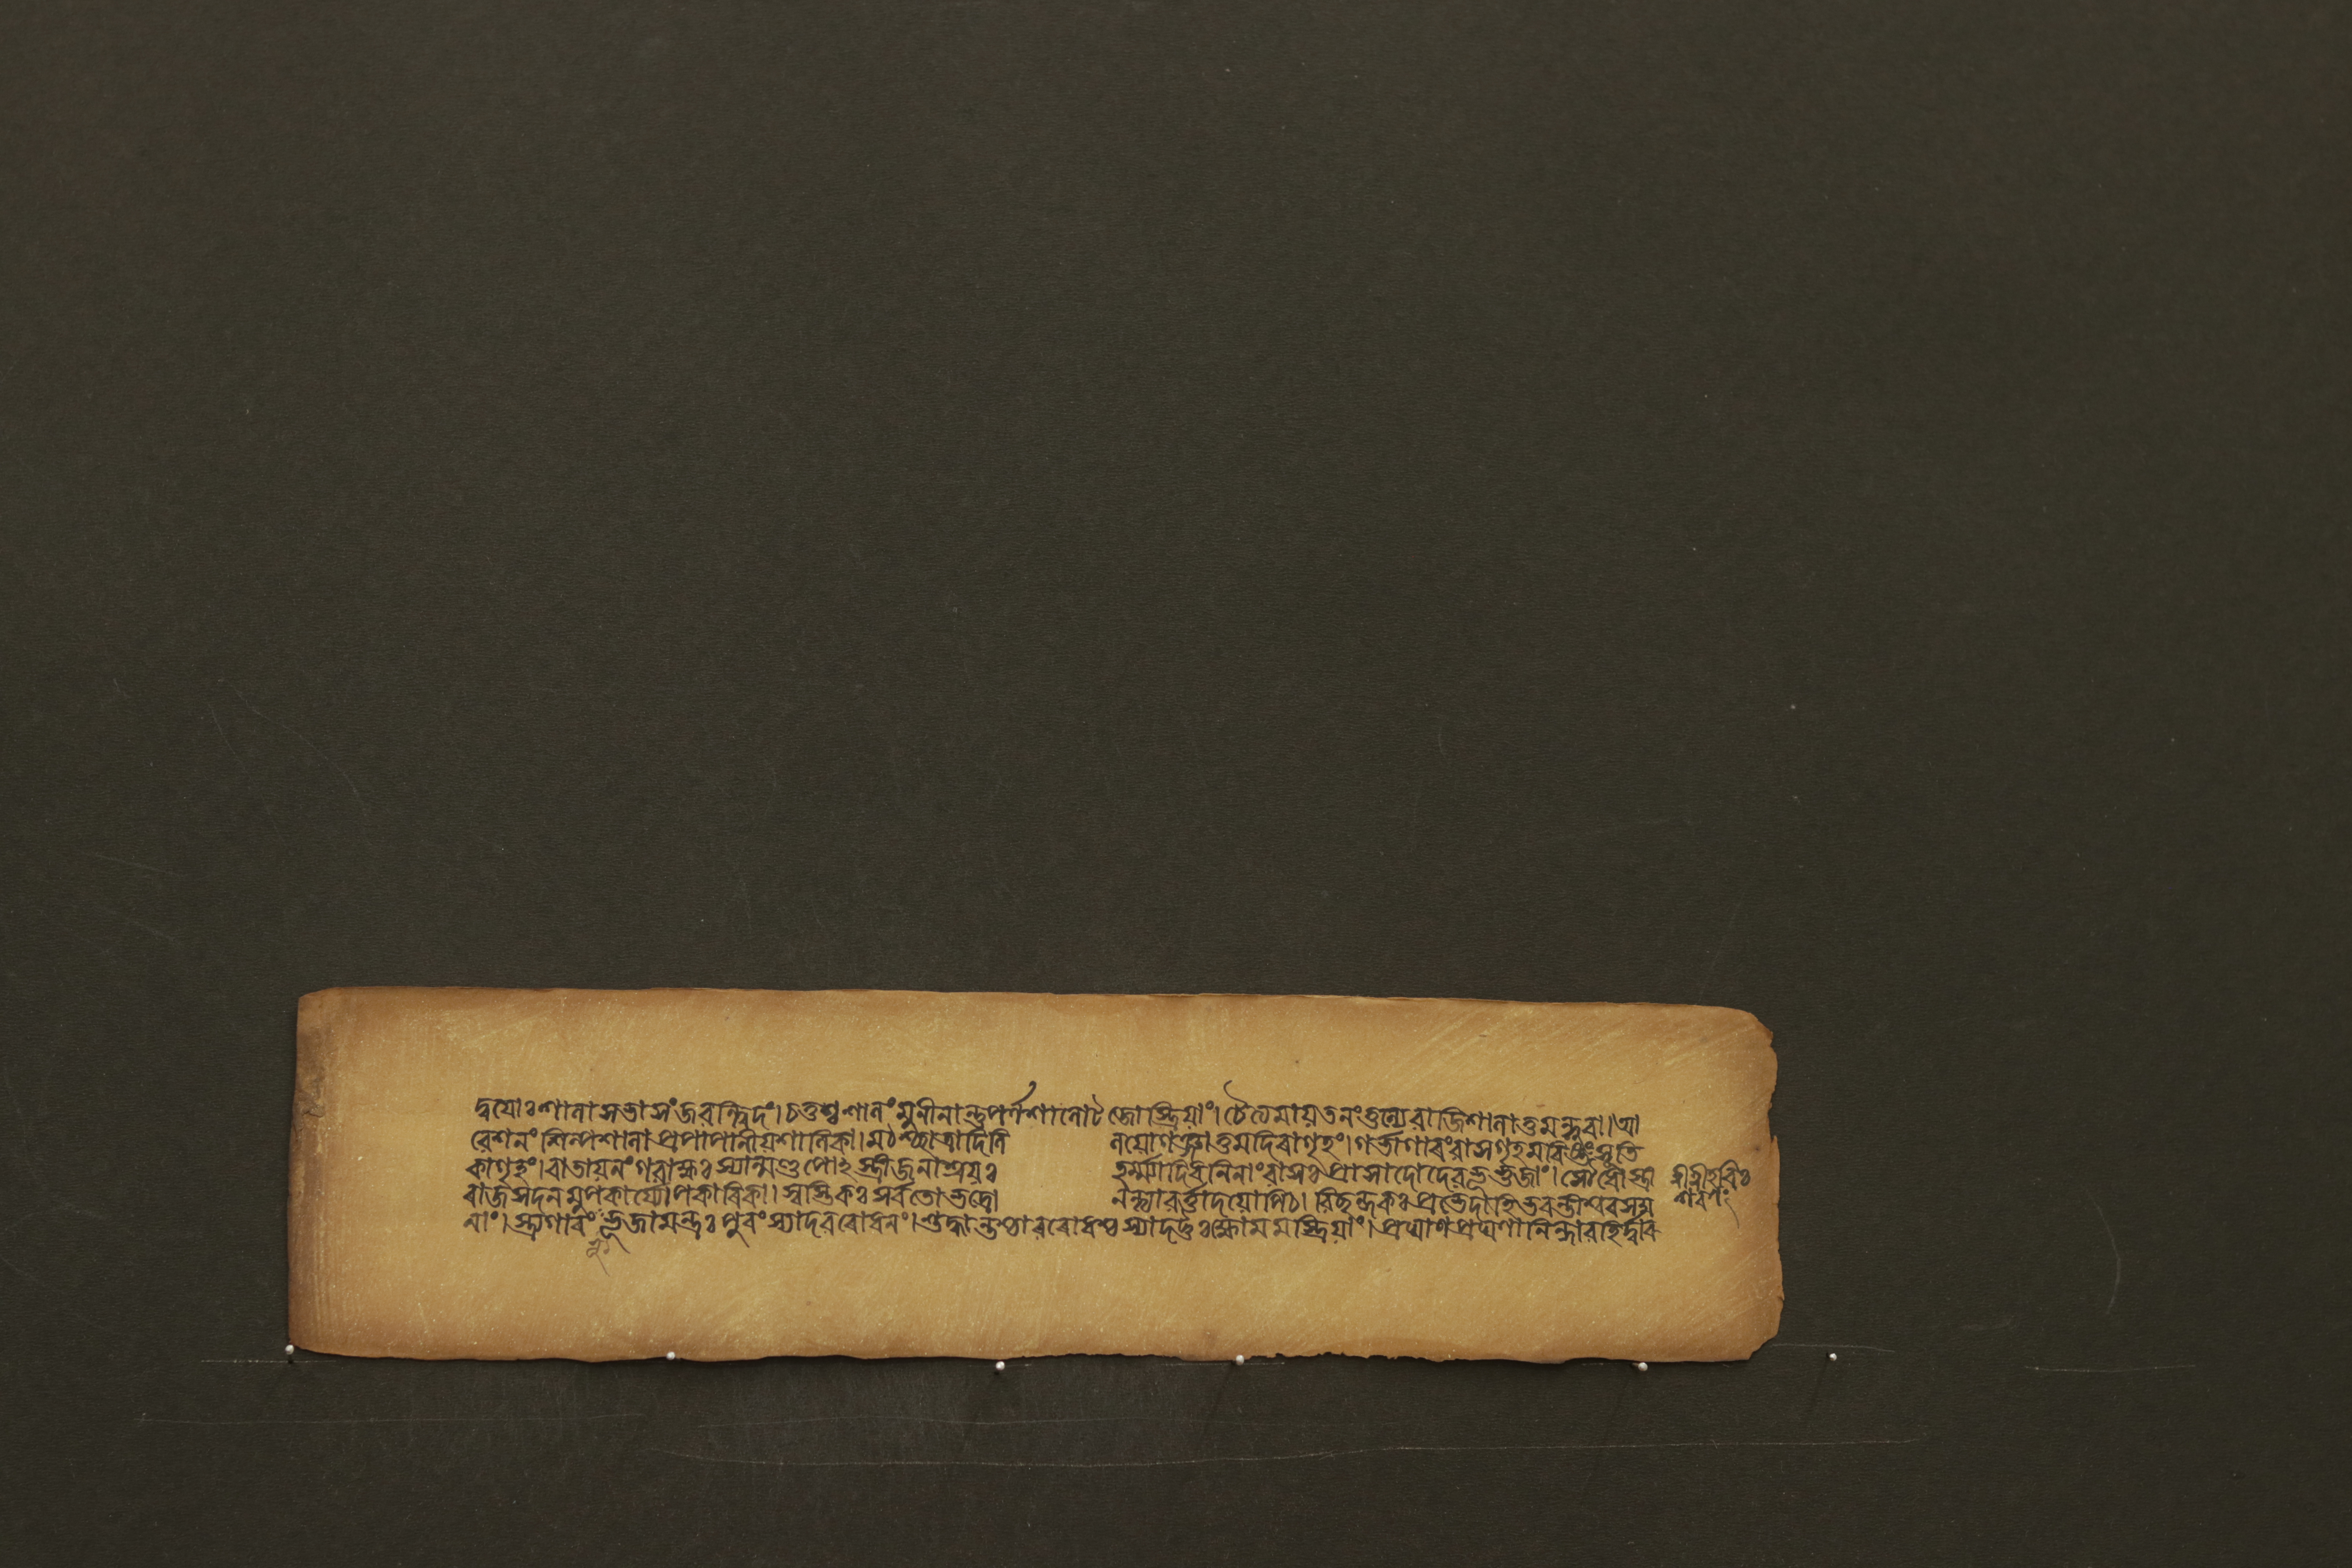 দ্বয়োঃ শালা সভা সংজৱনন্ত্বিদং। চতুশ্শালং মুনীনান্তু পর্ণশালোটজোস্ত্রিয়াং। চৈত্যমায়তনং তুল্যে ৱাজিশালা তু মন্দুৰা॥ আ
ৱেশনং শিল্পশালা প্রপা পানীয়শালিকা। মঠশ্ছাত্রাদিনি লয়োগঞ্জা তু মদিৰাগৃহং। গর্ভাগাৰং ৱাসগৃহমৰিষ্টং সূতি
কাগৃহং। ৱাতায়নং গৱাক্ষঃ স্যান্মণ্ডপোঽস্ত্রী জনাশ্রয়ঃ হর্ম্ম্যাদিধনিনাং ৱাসঃ প্রাসাদো দেৱভূভুজাং। সৌধোস্ত্রী
ৰাজসদনমুপকার্য্যোপকাৰিকা। স্বস্তিকঃ সর্বতোভদ্রো নন্দ্যাৱর্ত্তাদয়োপিচ। ৱিচ্ছন্দকঃ প্রভেদা হি ভৱন্তীশ্বৰসদ্ম
নাং। স্ত্র্যগাৰং ভূভুজামন্তঃপুৰং স্যাদৱৰোধনং। শুদ্ধান্তশ্চাৱৰোধশ্চ স্যাদট্টঃ ক্ষোমমস্ত্রিয়াং। প্রঘাণপ্রঘণালিন্দাৱহির্দ্বাৰ
শ্রীশ্রীহৰিঃ
শৰণং